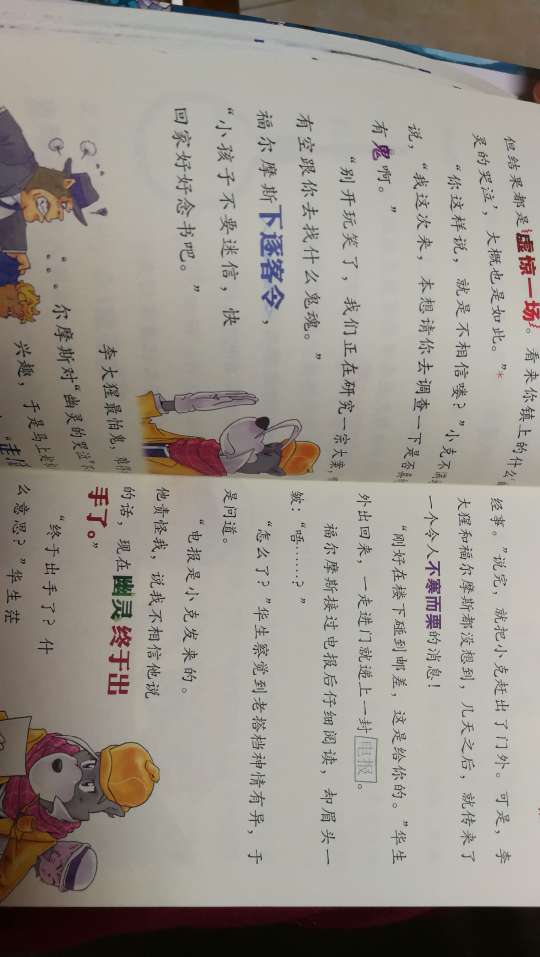 但结果都是虚惊一场。看来你镇上的什么
灵的哭泣’,大概也是如此。”
“你这样说,就是不相信喽?”小克不
说,“我这次来,本想请你去调查一下是否
有鬼啊。”
“别开玩笑了,我们正在研究一宗大案,
有空跟你去找什么鬼魂。”
福尔摩斯下逐客令,
“小孩子不要迷信,快
回家好好念书吧。”
李大猩最怕鬼,
尔摩斯对“幽灵的哭泣
兴趣,于是马上
经事。”说完,就把小克赶出了门外。可是,李
大猩和福尔摩斯都没想到,几天之后,就传来了
一个令人不寒而栗的消息!
“刚好在楼下碰到邮差,这是给你的。”华生
外出回来,一走进门就递上一封电报。
福尔摩斯接过电报后仔细阅读,却眉头一
皱:“唔……?”
“怎么了?”华生察觉到老搭档神情有异,于
是问道。
“电报是小克发来的。
他责怪我,说我不相信他说
的话,现在幽灵终于出
手了。”
“终于出手了?什
么意思?”华生茫